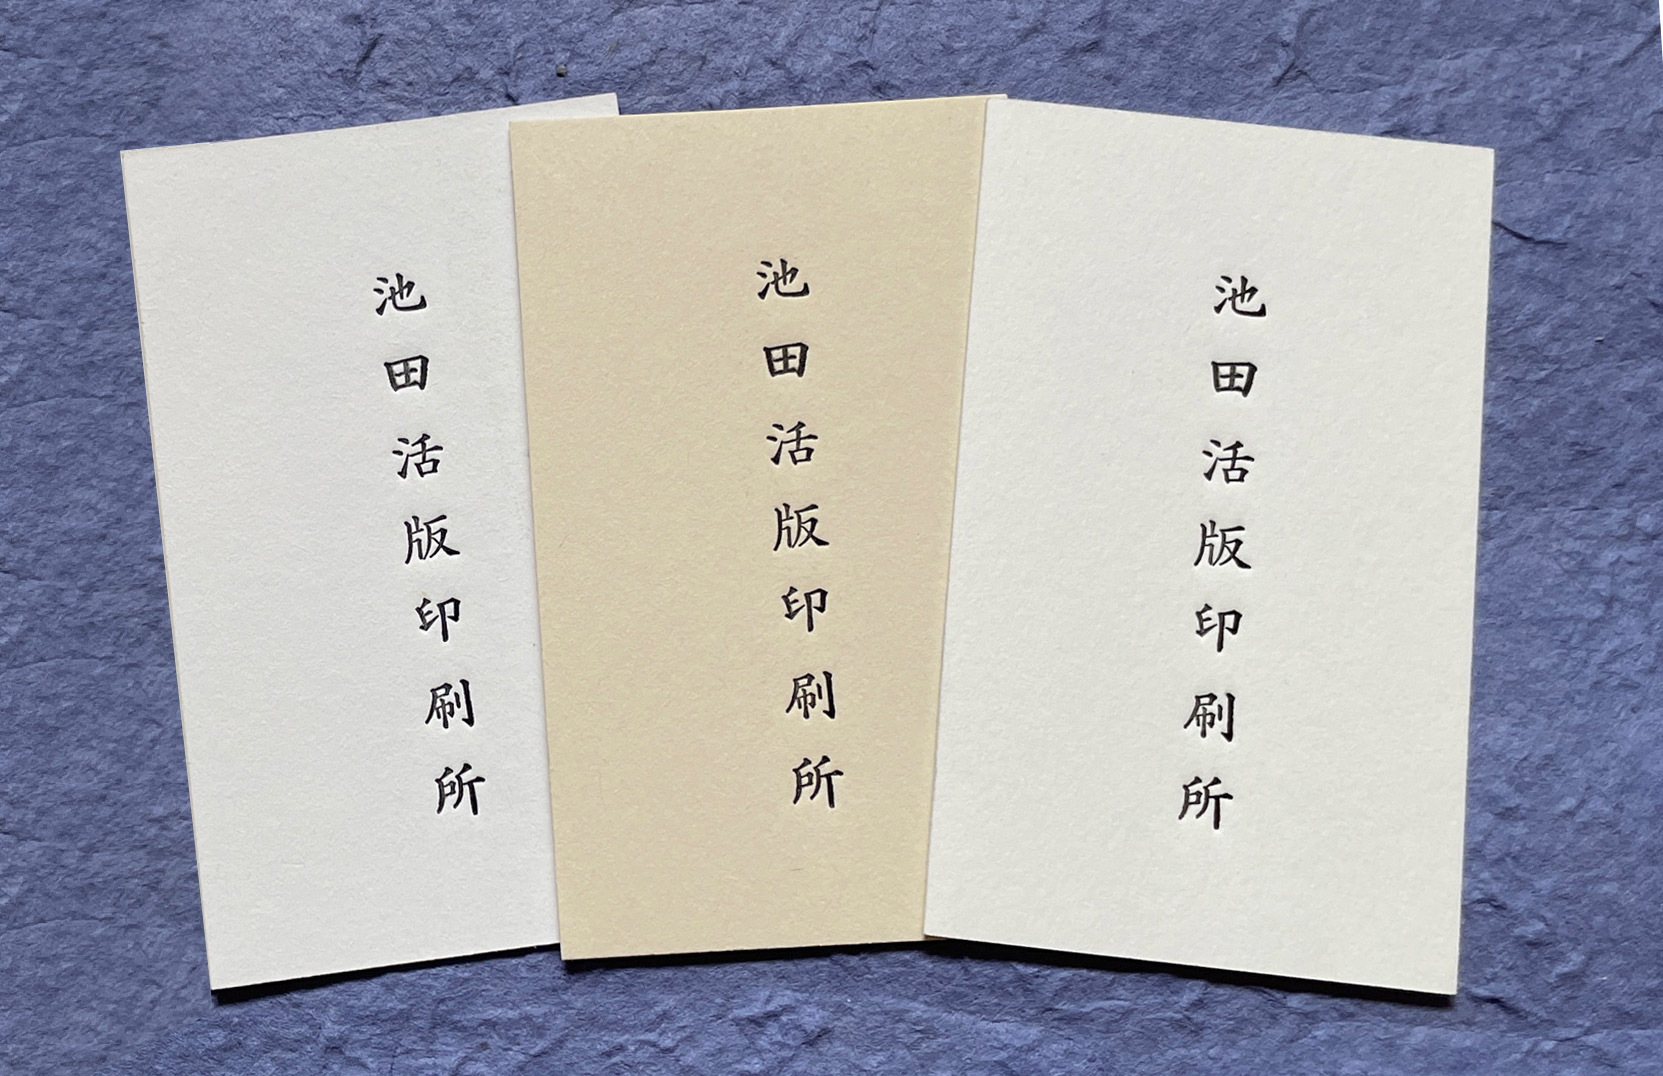 池田活版印刷所
池田活版印刷所
池田活版印刷所